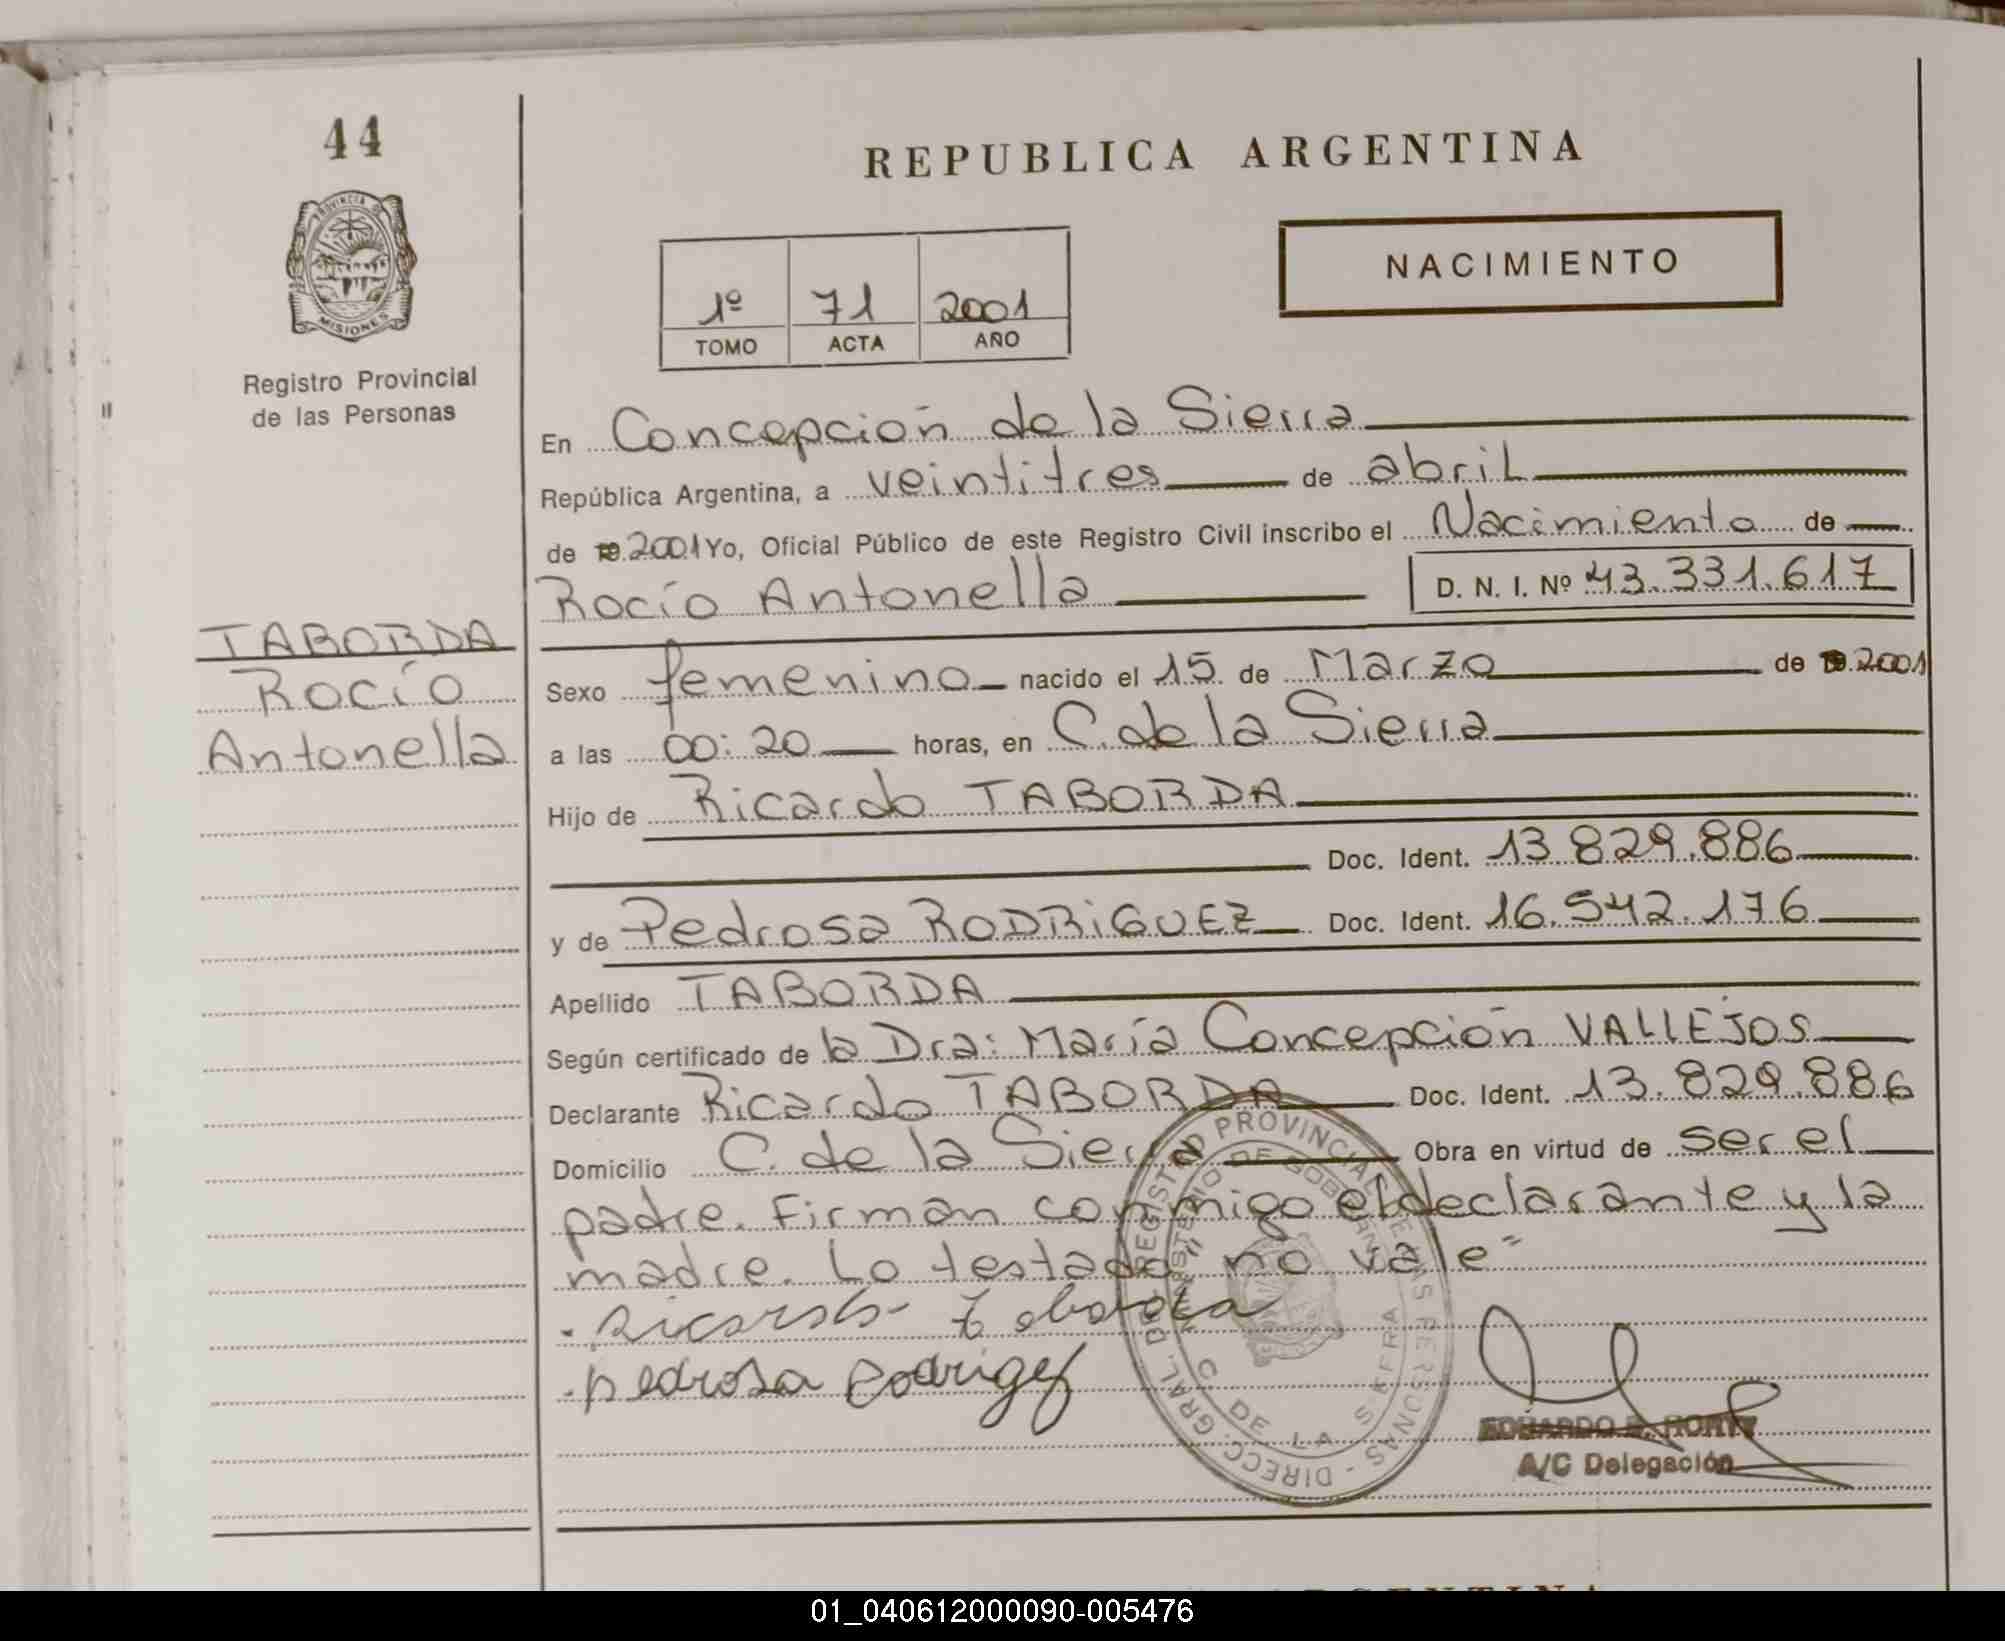 44
REPUBLICA ARGENTINA
PROVINCIA DE
MISIONES
Registro Provincial
de las Personas
NACIMIENTO
1º 71 2001
TOMO ACTA AÑO
En Concepción de la Sierra
República Argentina, a veintitres de abril
de 2001 Yo, Oficial Público de este Registro Civil inscribo el Nacimiento de
Rocío Antonella D. N. I. Nº 43.331.617
TABORDA
Rocío
Antonella
Sexo femenino nacido el 15 de Marzo de 2001
a las 00:20 horas, en C. de la Sierra
Hijo de Ricardo TABORDA
Doc. Ident. 13.829.886
y de Pedrosa RODRIGUEZ Doc. Ident. 16.542.176
Apellido TABORDA
Según certificado de la Dra: María Concepción VALLEJOS
Declarante Ricardo TABORDA Doc. Ident. 13.829.886
Domicilio C. de la Sierra Obra en virtud de ser el
padre. Firman conmigo el declarante y la
madre. Lo testado "no vale"
Ricardo Taborda
pedrosa Rodrigez
DIRECC. GRAL. DEL REGISTRO PROVINCIAL DE LAS PERSONAS
MINISTERIO DE GOBIERNO
C. DE LA SIERRA
EDUARDO
A/C Delegación
ARGENTINA
01_040612000090-005476